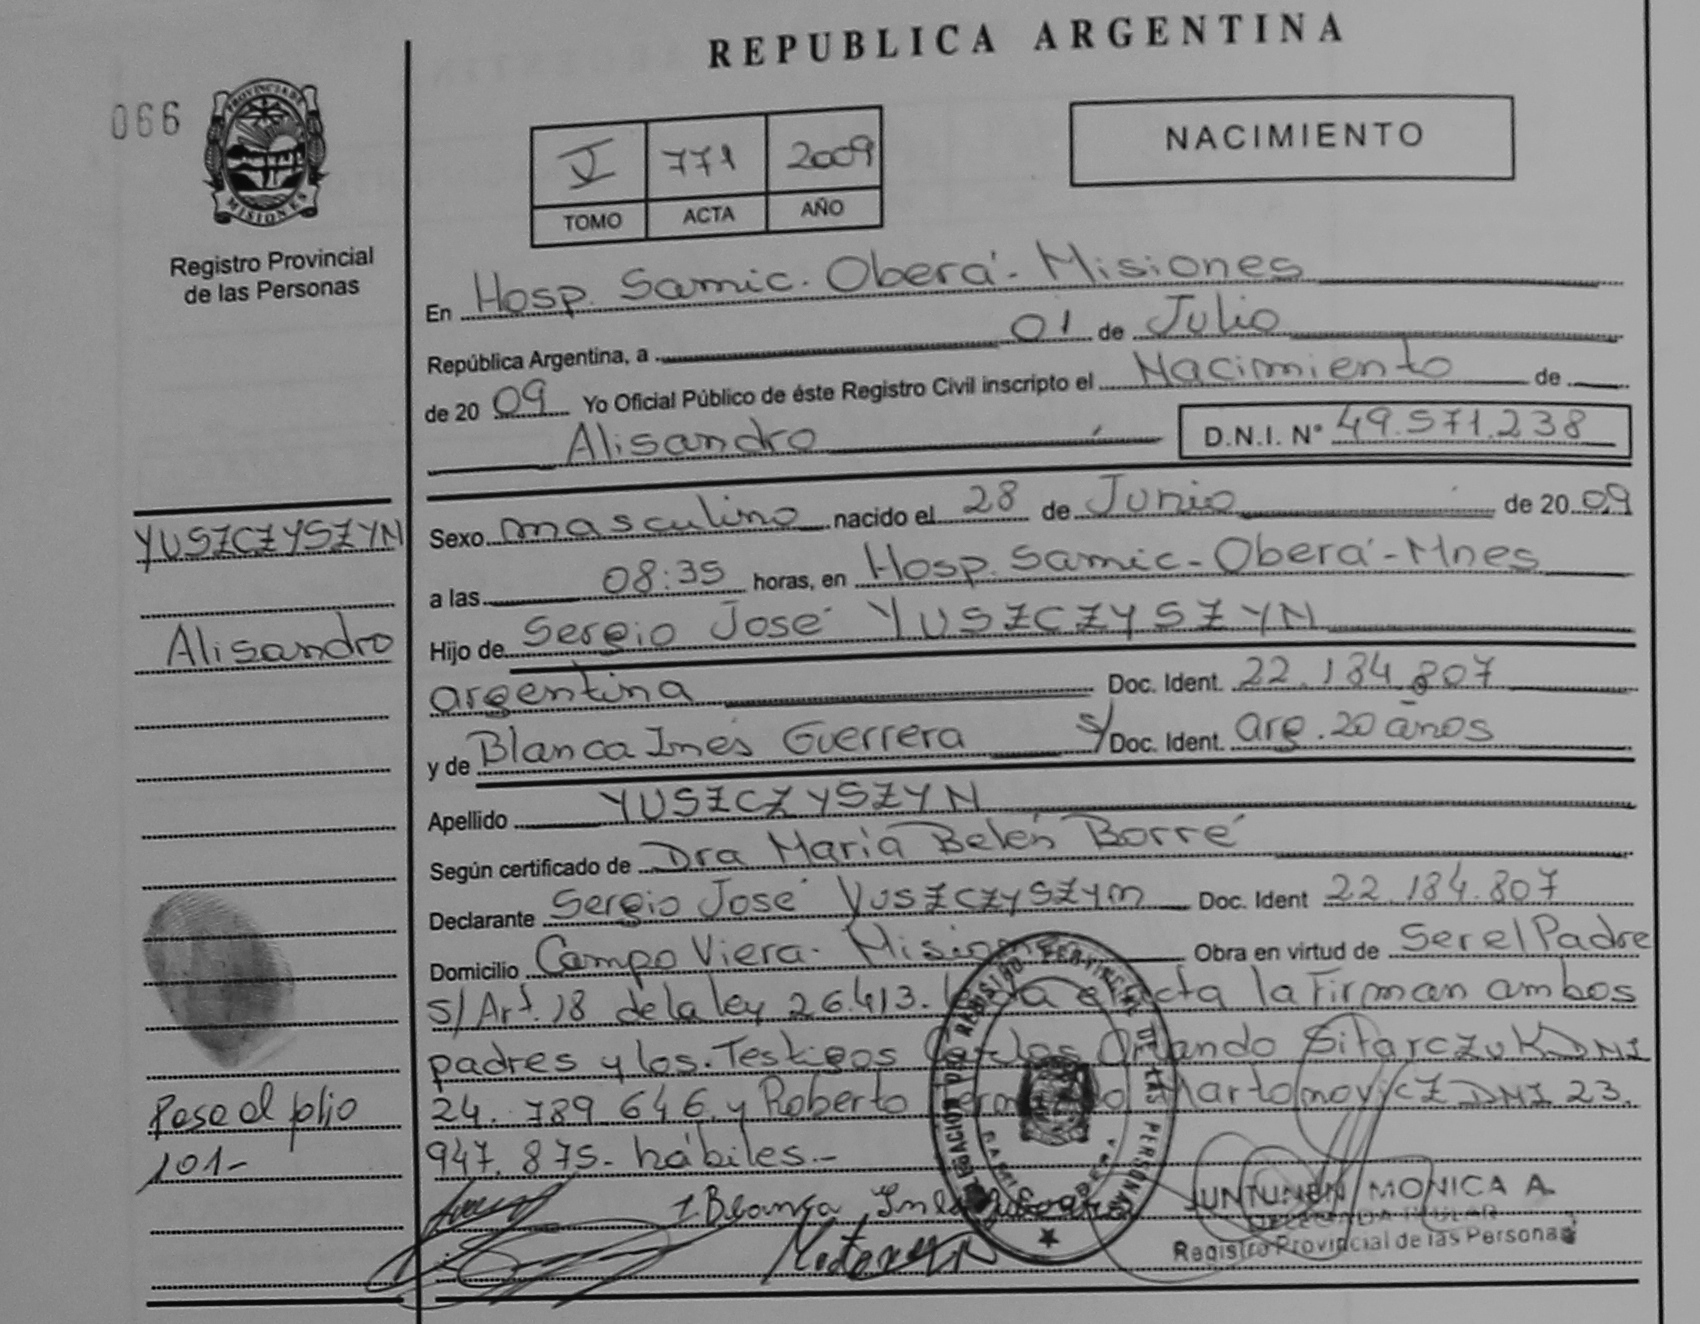 REPUBLICA ARGENTINA
066
PROVINCIA DE
MISIONES
Registro Provincial
de las Personas
V 771 2009
TOMO ACTA AÑO
NACIMIENTO
En Hosp. Samic. Oberá - Misiones
República Argentina, a 01 de Julio
de 20 09 Yo Oficial Público de éste Registro Civil inscripto el Nacimiento de
Alisandro D.N.I. N° 49.571.238
YUSZCZYSZYN
Alisandro
Sexo masculino nacido el 28 de Junio de 20 09
a las 08:35 horas, en Hosp. Samic - Oberá - Mnes
Hijo de Sergio José YUSZCZYSZYN
argentina Doc. Ident. 22.184.807
y de Blanca Inés Guerrera s/ Doc. Ident. arg. 20 años
Apellido YUSZCZYSZYN
Según certificado de Dra María Belén Borré
Declarante Sergio José YUSZCZYSZYN Doc. Ident 22.184.807
Domicilio Campo Viera - Misiones Obra en virtud de Ser el Padre
s/ Art. 18 de la ley 26.413. la Firman ambos
padres y los Testigos Carlos Orlando SitarczuK DNI
24.789.646 y Roberto MartomovicZ DNI 23.
947.875 - hábiles.-
Pase al folio
101-
Blanca Ines
JUNTUNEN MONICA A.
DELEGADA TITULAR
Registro Provincial de las Personas